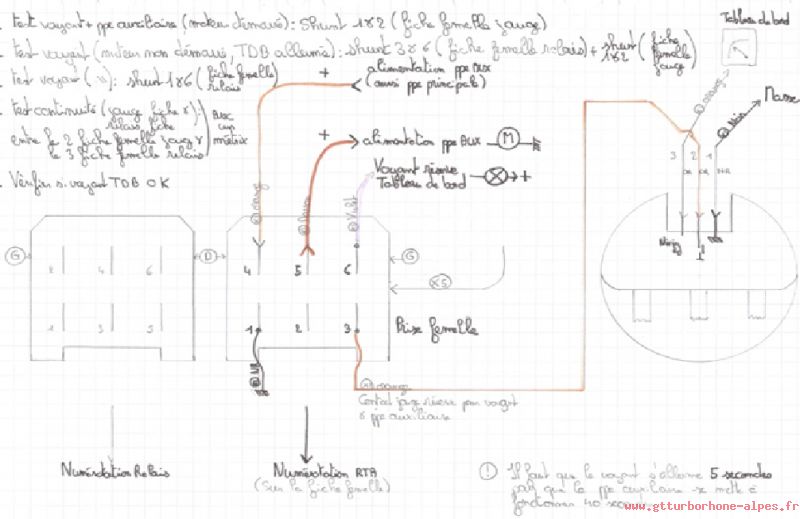 . Test voyant + ppe auxiliaire (moteur démarré): Shunt 1&2 (fiche femelle jauge)
. test voyant (moteur non démarré, TDB allumé): shunt 3&6 (fiche femelle relais) + shunt 1&2 (fiche femelle jauge)
. test voyant ("): shunt 1&6 (fiche femelle relais)
. Test continuité (jauge fiche
relais fiche
entre le 2 fiche femelle jauge &
le 3 fiche femelle relais
. Vérifier si voyant TDB OK
+
alimentation ppe Aux
(ainsi ppe principale)
+
alimentation ppe Aux
M
Voyant réserve
Tableau de bord
+
Tableau de bord
Masse
Noir
3
2
1
OR
NR
G
D
G
2
4
6
1
3
5
4
5
6
1
2
3
Violet
Prise femelle
NR
orange
Contact jauge réserve pour voyant
& ppe auxiliaire
Numérotation Relais
Numérotation RTA
(Sur la fiche femelle)
! Il faut que le voyant s'allume 5 secondes
que la ppe auxiliaire se mette à
fonctionner 40 secondes
www.gtturborhone-alpes.fr